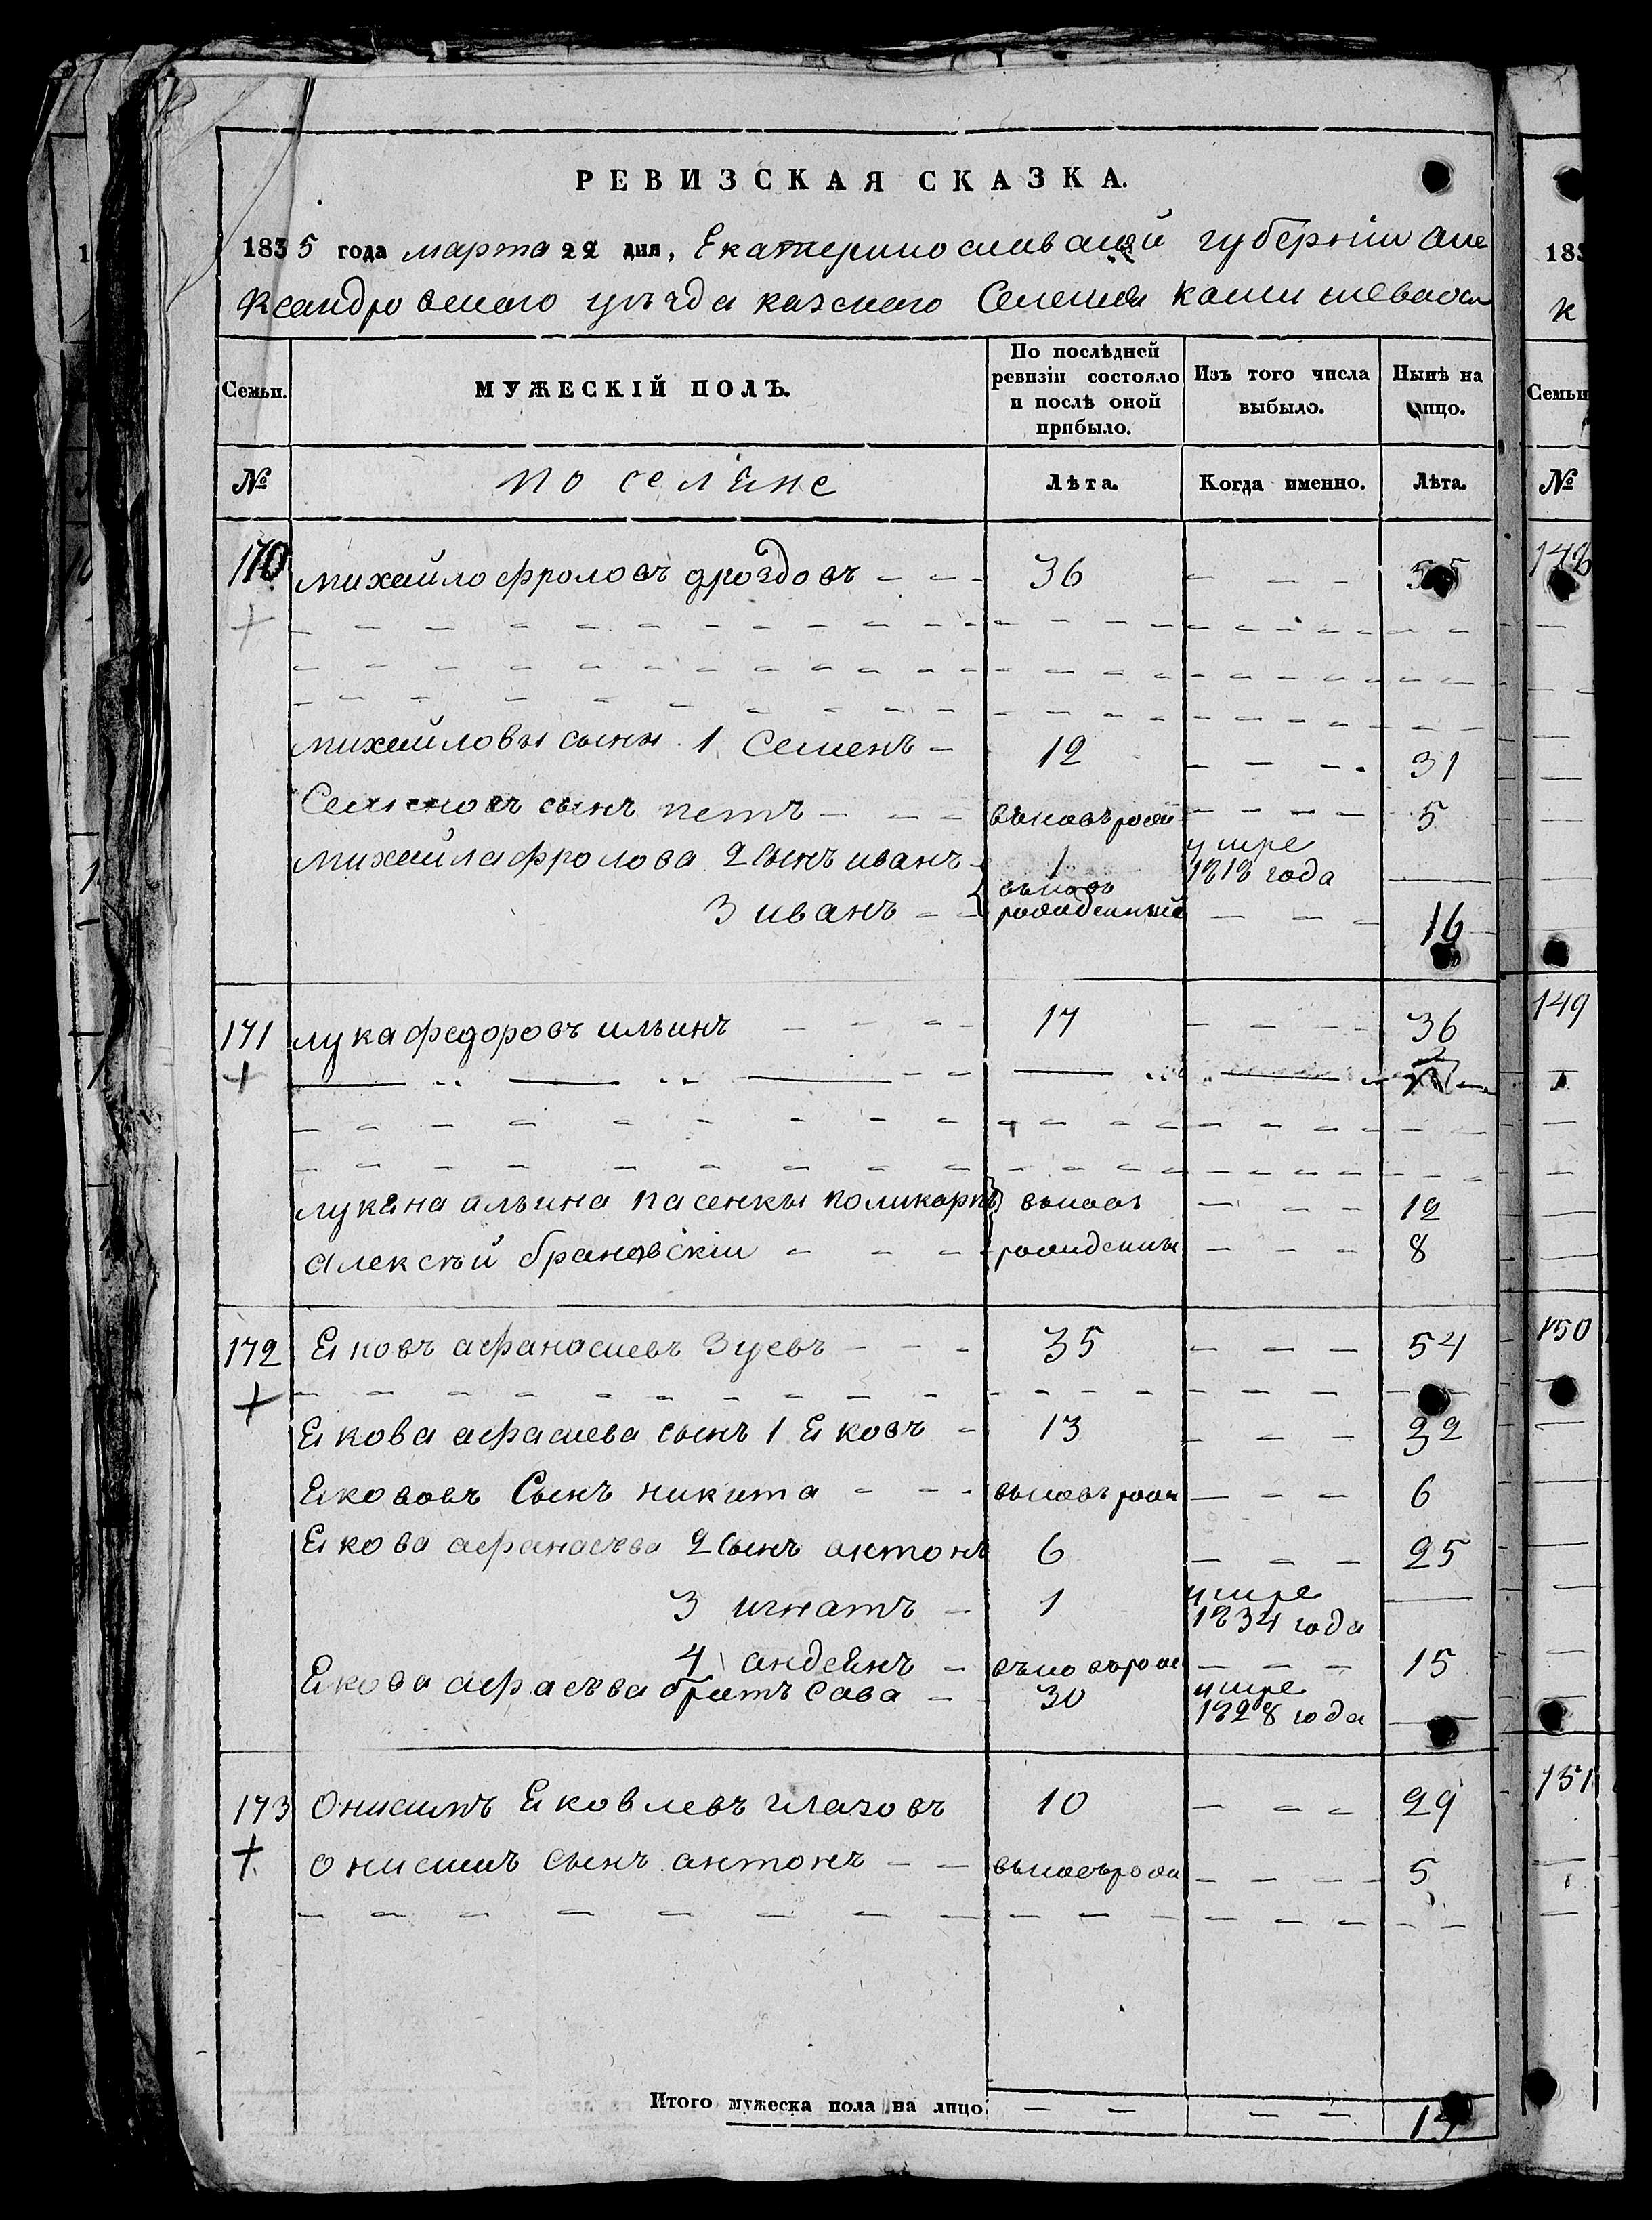 РЕВИЗСКАЯ СКАЗКА.
1835 года марта 22 дня, Екатеринославской губерніи Але
ксандровскаго уѣзда казенаго Селения
Семьи. МУЖЕСКІЙ ПОЛЪ. По послѣдней ревизіи состояло и послѣ оной прибыло. Изъ того числа выбыло. Нынѣ на лицо.
№ поселяне Лѣта. Когда именно. Лѣта.
170 михайло фроловъ дроздовъ 36 55
михайловы сыны 1 Семенъ 12 31
Семеновъ сынъ петъ вновь рожд 5
михайла фролова 2 сынъ иванъ 1 умре 1818 года
3 иванъ вновь рожденный 16
171 лука федоровъ ильинъ 17 36
лукана ильина пасенкы поликарпъ вновь 12
Алексѣй брановскіи рожденны 8
172 Яковъ афанасиевъ Зуевъ 35 54
Якова афасиева сынъ 1 Яковъ 13 32
Якововъ Сынъ никита вновь рожд 6
Якова афанасѣва 2 сынъ антонъ 6 25
3 игнатъ 1 умре 1834 года
4 андеянъ вновь рожд 15
Якова афасѣва братъ Сава 30 умре 1828 года
173 Онисимъ Яковлевъ глазовъ 10 29
онисимъ сынъ антонъ вновь рожд 5
Итого мужеска пола на лицо
183
к
Семьи
№
148
149
150
151